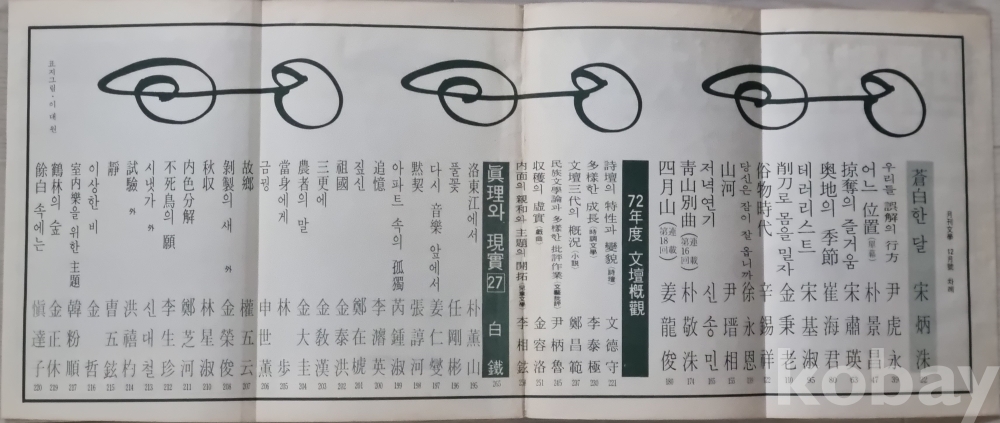 月刊文學 12月號 차례
蒼白한 달 宋炳洙
우리들 誤解의 行方 尹虎永
어느 位置 朴景昌 147
掠奪의 즐거움 宋肅瑛
奧地의 季節 崔海君
테러리스트 宋基淑
削刀로 몸을 밀자 金秉老
俗物時代 辛錫祥
당신은 잠이 잘 옵니까 徐永恩
山河 尹瑨相
저녁연기 신송민
靑山別曲 (連載 第16回) 朴敬洙 174
四月山 (連載 第18回) 姜龍俊
72年度 文壇槪觀
詩壇의 特性과 變貌 (詩壇) 文德守 221
多樣한 成長 (時調文學) 李泰極
文壇三代의 槪況 (小說) 鄭昌範
民族文學論과 多樣한 批評作業 尹柄魯
收穫의 虛實 (戱曲) 金容洛 251
內面의 親和와 主題의 開拓 (兒童文學) 李相鉉
眞理와 現實 27 白鐵 265
洛東江에서 朴薰山 195
풀꽃 任剛彬 196
다시 音樂 앞에서 姜仁燮
默契 張諄河 198
아파트 속의 孤獨 芮鍾淑 199
追憶 李濬英 200
짚신 鄭在虎
祖國 金泰洪
三更에 金敎漢
農者의 말 金大圭 204
當身에게 林步
금핑 申世薰 206
故鄕 權五云
剝製의 새 外 金榮俊
秋収 林星淑
內色分解 鄭芝河
不死鳥의 願 李生珍 212
시냇가 外 신대철 213
試驗 外 洪禧杓 214
靜 曺五鉉 216
이상한 비 金哲 217
室內樂을 위한 主題 韓粉順
鶴林의 숲 金正休 219
餘白 속에는 愼達子 220
표지그림・이대원
kobay